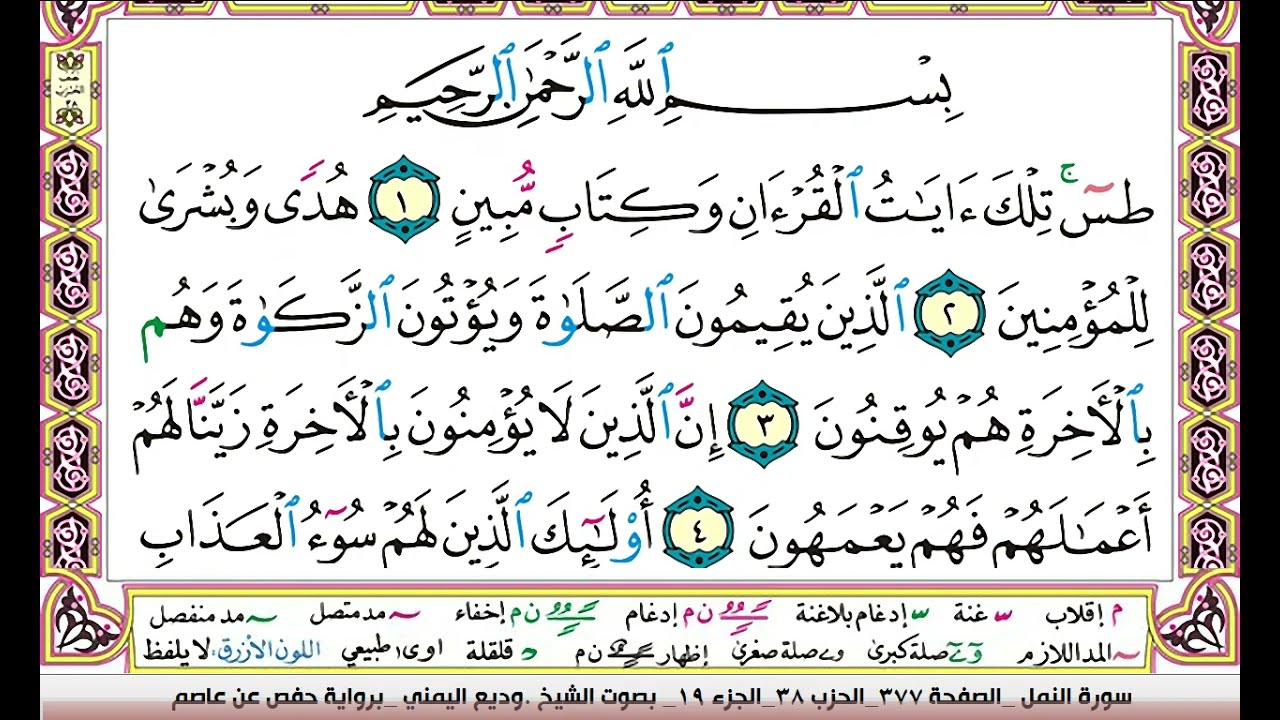 بِسْمِ ٱللَّهِ ٱلرَّحْمَٰنِ ٱلرَّحِيمِ
طسٓ ۚ تِلْكَ ءَايَٰتُ ٱلْقُرْءَانِ وَكِتَابٍ مُّبِينٍ ١ هُدًى وَبُشْرَىٰ
لِلْمُؤْمِنِينَ ٢ ٱلَّذِينَ يُقِيمُونَ ٱلصَّلَوٰةَ وَيُؤْتُونَ ٱلزَّكَوٰةَ وَهُم
بِٱلْأَخِرَةِ هُمْ يُوقِنُونَ ٣ إِنَّ ٱلَّذِينَ لَا يُؤْمِنُونَ بِٱلْأَخِرَةِ زَيَّنَّا لَهُمْ
أَعْمَٰلَهُمْ فَهُمْ يَعْمَهُونَ ٤ أُو۟لَٰٓئِكَ ٱلَّذِينَ لَهُمْ سُوٓءُ ٱلْعَذَابِ
م إقلاب س غنة س إدغام بلاغنة ن م إدغام ن م إخفاء مد متصل مد منفصل
المد اللازم و ے صلة كبرى و ے صلة صغرى إظهار ن م د قلقلة اوى ا طبيعي اللون الأزرق لا يلفظ
سورة النمل _الصفحة ٣٧٧_الحزب ٣٨_الجزء ١٩_ بصوت الشيخ .وديع اليمني _برواية حفص عن عاصم